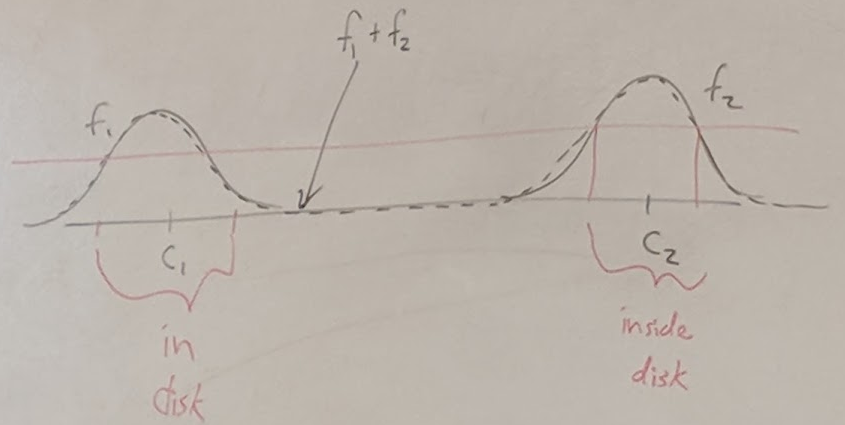 f₁ + f₂
f₁
f₂
C₁
C₂
in
disk
inside
disk